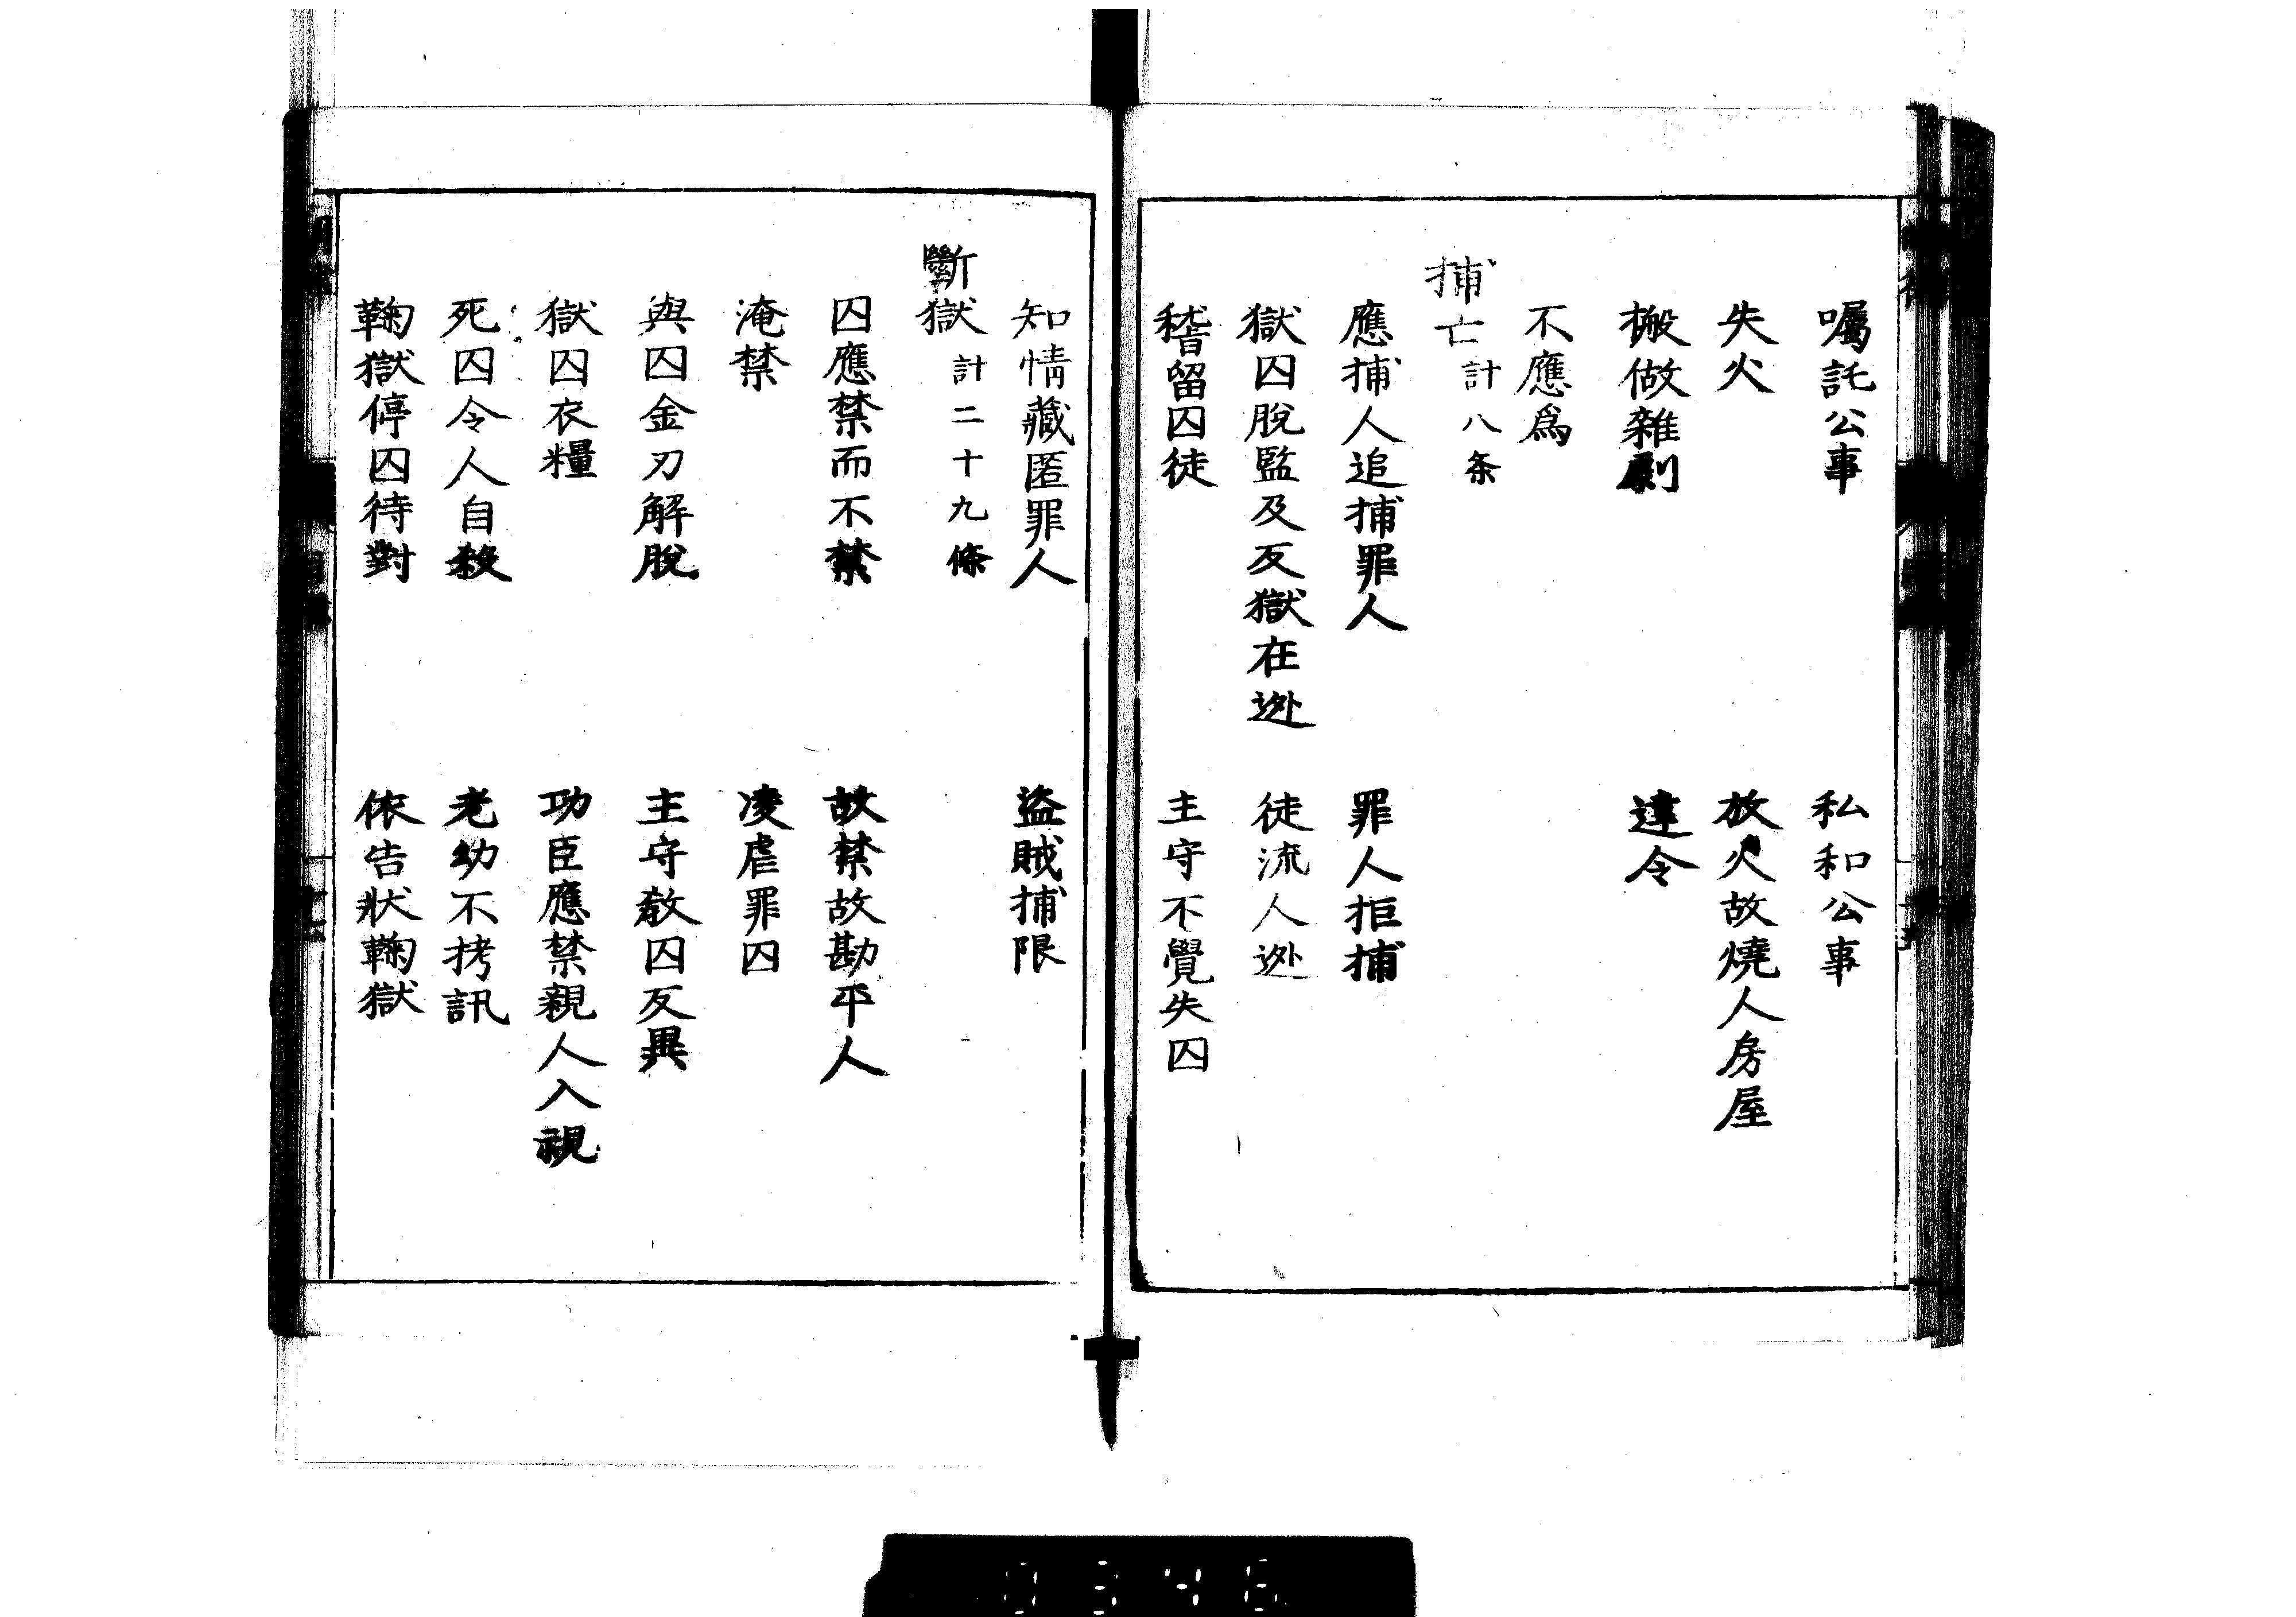 囑託公事　私和公事
失火　放火故燒人房屋
搬做雜劇　違令
不應爲
捕亡計八条
應捕人追捕罪人　罪人拒捕
獄囚脫監及反獄在逊　徒流人逊
稽留囚徒　主守不覺失囚
知情藏匿罪人　盜賊捕限
斷獄計二十九條
囚應禁而不禁　故禁故勘平人
淹禁　凌虐罪囚
與囚金刃解脫　主守敎囚反異
獄囚衣糧　功臣應禁親人入視
死囚令人自殺　老幼不拷訊
鞫獄停囚待對　依告狀鞫獄
0346